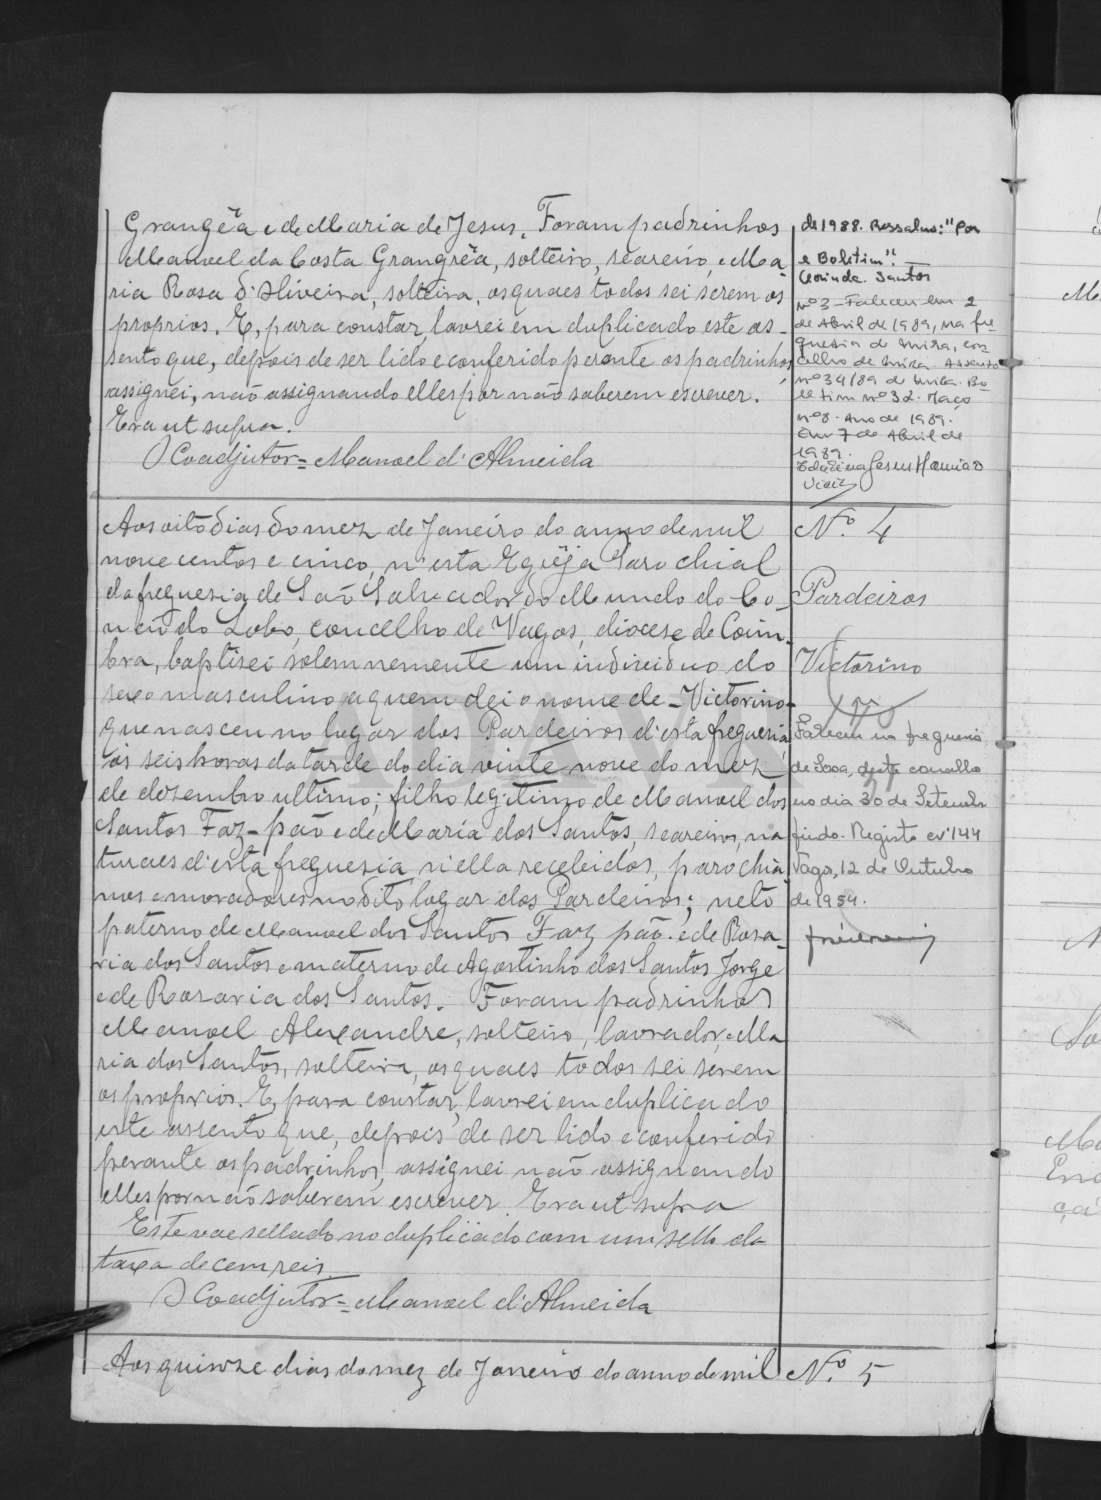 Grangêa e de Maria de Jesus. Foram padrinhos
Manoel da Costa Grangêa, solteiro, seareiro, e Ma-
ria Rosa d'Oliveira, solteira, os quaes todos sei serem os
proprios. E, para constar, lavrei em duplicado este as-
sento que, depois de ser lido e conferido perante os padrinhos,
assignei, não assignando elles por não saberem escrever.
Era ut supra.
O Coadjutor = Manoel d'Almeida
de 1988. Ressalvo: "Por
e Boletim".
Clorinda Santos
nº 3 - Faleceu em 2
de Abril de 1989, na fre-
guesia de Mira, con-
celho de Mira. Assento
nº 34/89 de Mira. Bo-
letim nº 32. Maço
nº 8. Ano de 1989.
Em 7 de Abril de
1989.
Aos oito dias do mez de Janeiro do anno de mil
nove centos e cinco, n'esta Egreja Parochial
da freguezia de São Salvador do Mundo do Co-
vão do Lobo, concelho de Vagos, diocese de Coim-
bra, baptisei solemnemente um individuo do
sexo masculino a quem dei o nome de - Victorino -
que nasceu no logar dos Pardeiros d'esta freguezia
ás seis horas da tarde do dia vinte nove do mez
de dezembro ultimo; filho legitimo de Manoel dos
Santos Faz-pão e de Maria dos Santos, seareiros, na
turaes d'esta freguezia, n'ella recebidos, parochia-
nos e moradores no dito logar dos Pardeiros; neto
paterno de Manoel dos Santos Faz pão e de Rosa-
ria dos Santos e materno de Agostinho dos Santos Jorge
e de Rozaria dos Santos. Foram padrinhos
Manoel Alexandre, solteiro, lavrador, e Ma
ria dos Santos, solteira, os quaes todos sei serem
os proprios. E, para constar, lavrei em duplicado
este assento que, depois de ser lido e conferido
perante os padrinhos, assignei não assignando
elles por não saberem escrever. Era ut supra
Este vae sellado no duplicado com um sello da
taxa de cem reis.
O Coadjutor = Manoel d'Almeida
Nº. 4
Pardeiros
Victorino
Faleceu na freguesia
de Sosa, deste concelho
no dia 30 de Setembro
findo. Registo nº 144
Vagos, 12 de Outubro
de 1954.
Aos quinze dias do mez de Janeiro do anno de mil
Nº. 5
ADAVR